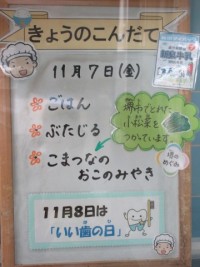 きょうのこんだて
11月7日(金)
ごはん
ぶたじる
こまつなの
おこのみやき
でとれた
小松菜を
つかっています
畑の
めぐみ
11月8日は
「いい歯の日」